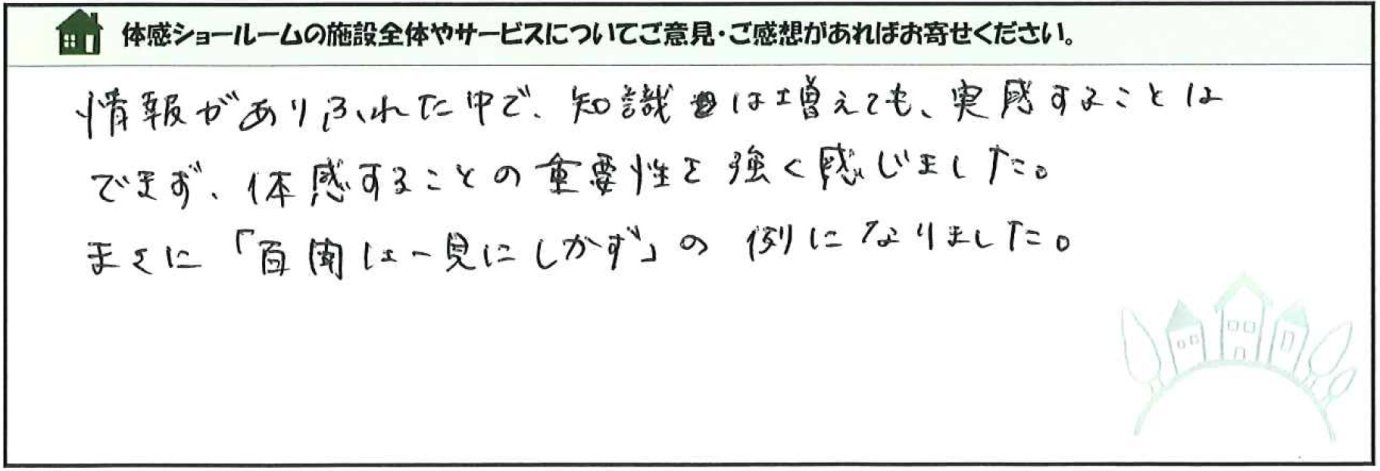 体感ショールームの施設全体やサービスについてご意見・ご感想があればお寄せください。
情報がありふれた中で、知識は増えても、実感することは
できず、体感することの重要性を強く感じました。
まさに「百聞は一見にしかず」の例になりました。